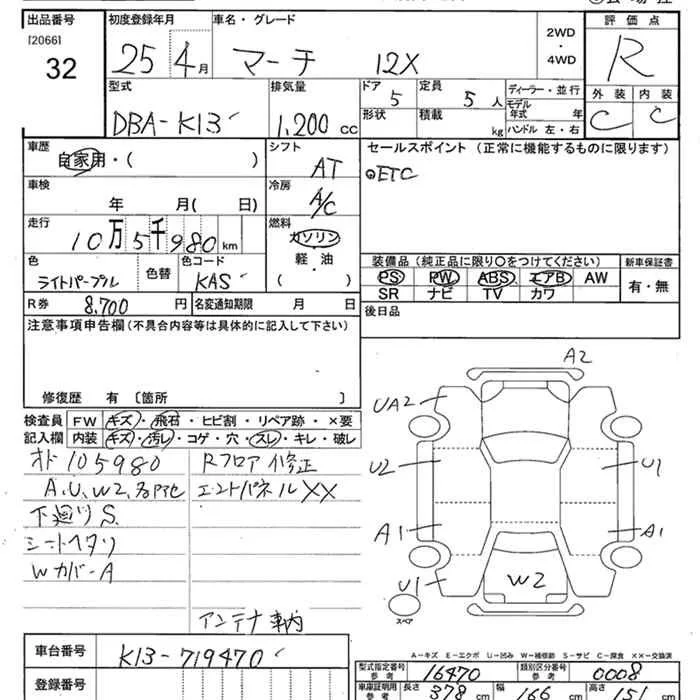 出品番号
[2066]
32
初度登録年月
25 4月
車名・グレード
マーチ 12X
2WD
・
4WD
評価点
R
外装 内装
C C
型式
DBA-K13
排気量
1,200 cc
ドア
5
定員
5人
形状
積載
kg
ディーラー・並行
モデル
年式 年
ハンドル 左・右
車歴
自家用・( )
シフト
AT
セールスポイント(正常に機能するものに限ります)
ETC
車検
年 月( 日)
冷房
A/C
走行
10万5千980km
燃料
ガソリン
軽・油
( )
色
ライトパープル
色替
色コード
KAS
装備品(純正品に限り○をつけてください)
PS PW ABS エアB AW
SR ナビ TV カワ
新車保証書
有・無
R券 8,700円
名変通知期限 月 日
後日品
注意事項申告欄(不具合内容等は具体的に記入して下さい)
修復歴 有 〔箇所 〕
検査員
記入欄
FW キズ・飛石・ヒビ割・リペア跡・×要
内装 キズ・汚レ・コゲ・穴・スレ・キレ・破レ
オド105980
A.U.W2.
下廻りS.
シートヘタリ
Wカバ-A
Rフロア修正
エンドパネルXX
アンテナ車内
A2
UA2
U2
U1
A1
A1
U1
W2
スペア
A-キズ E-エクボ U-凹み W-補修跡 S-サビ C-腐食 XX-交換済
車台番号
K13-719470
登録番号
型式指定番号
参考
16470
類別区分番号
参考
0008
車庫証明用
参考
長さ 378 cm
幅 166 cm
高さ 151 cm